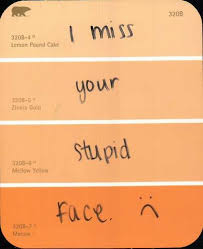 320B
I miss
320B-4
Lemon Pound Cake
your
320B-5
stupid
320B-6
Mellow Yellow
Face. :(
320B-7